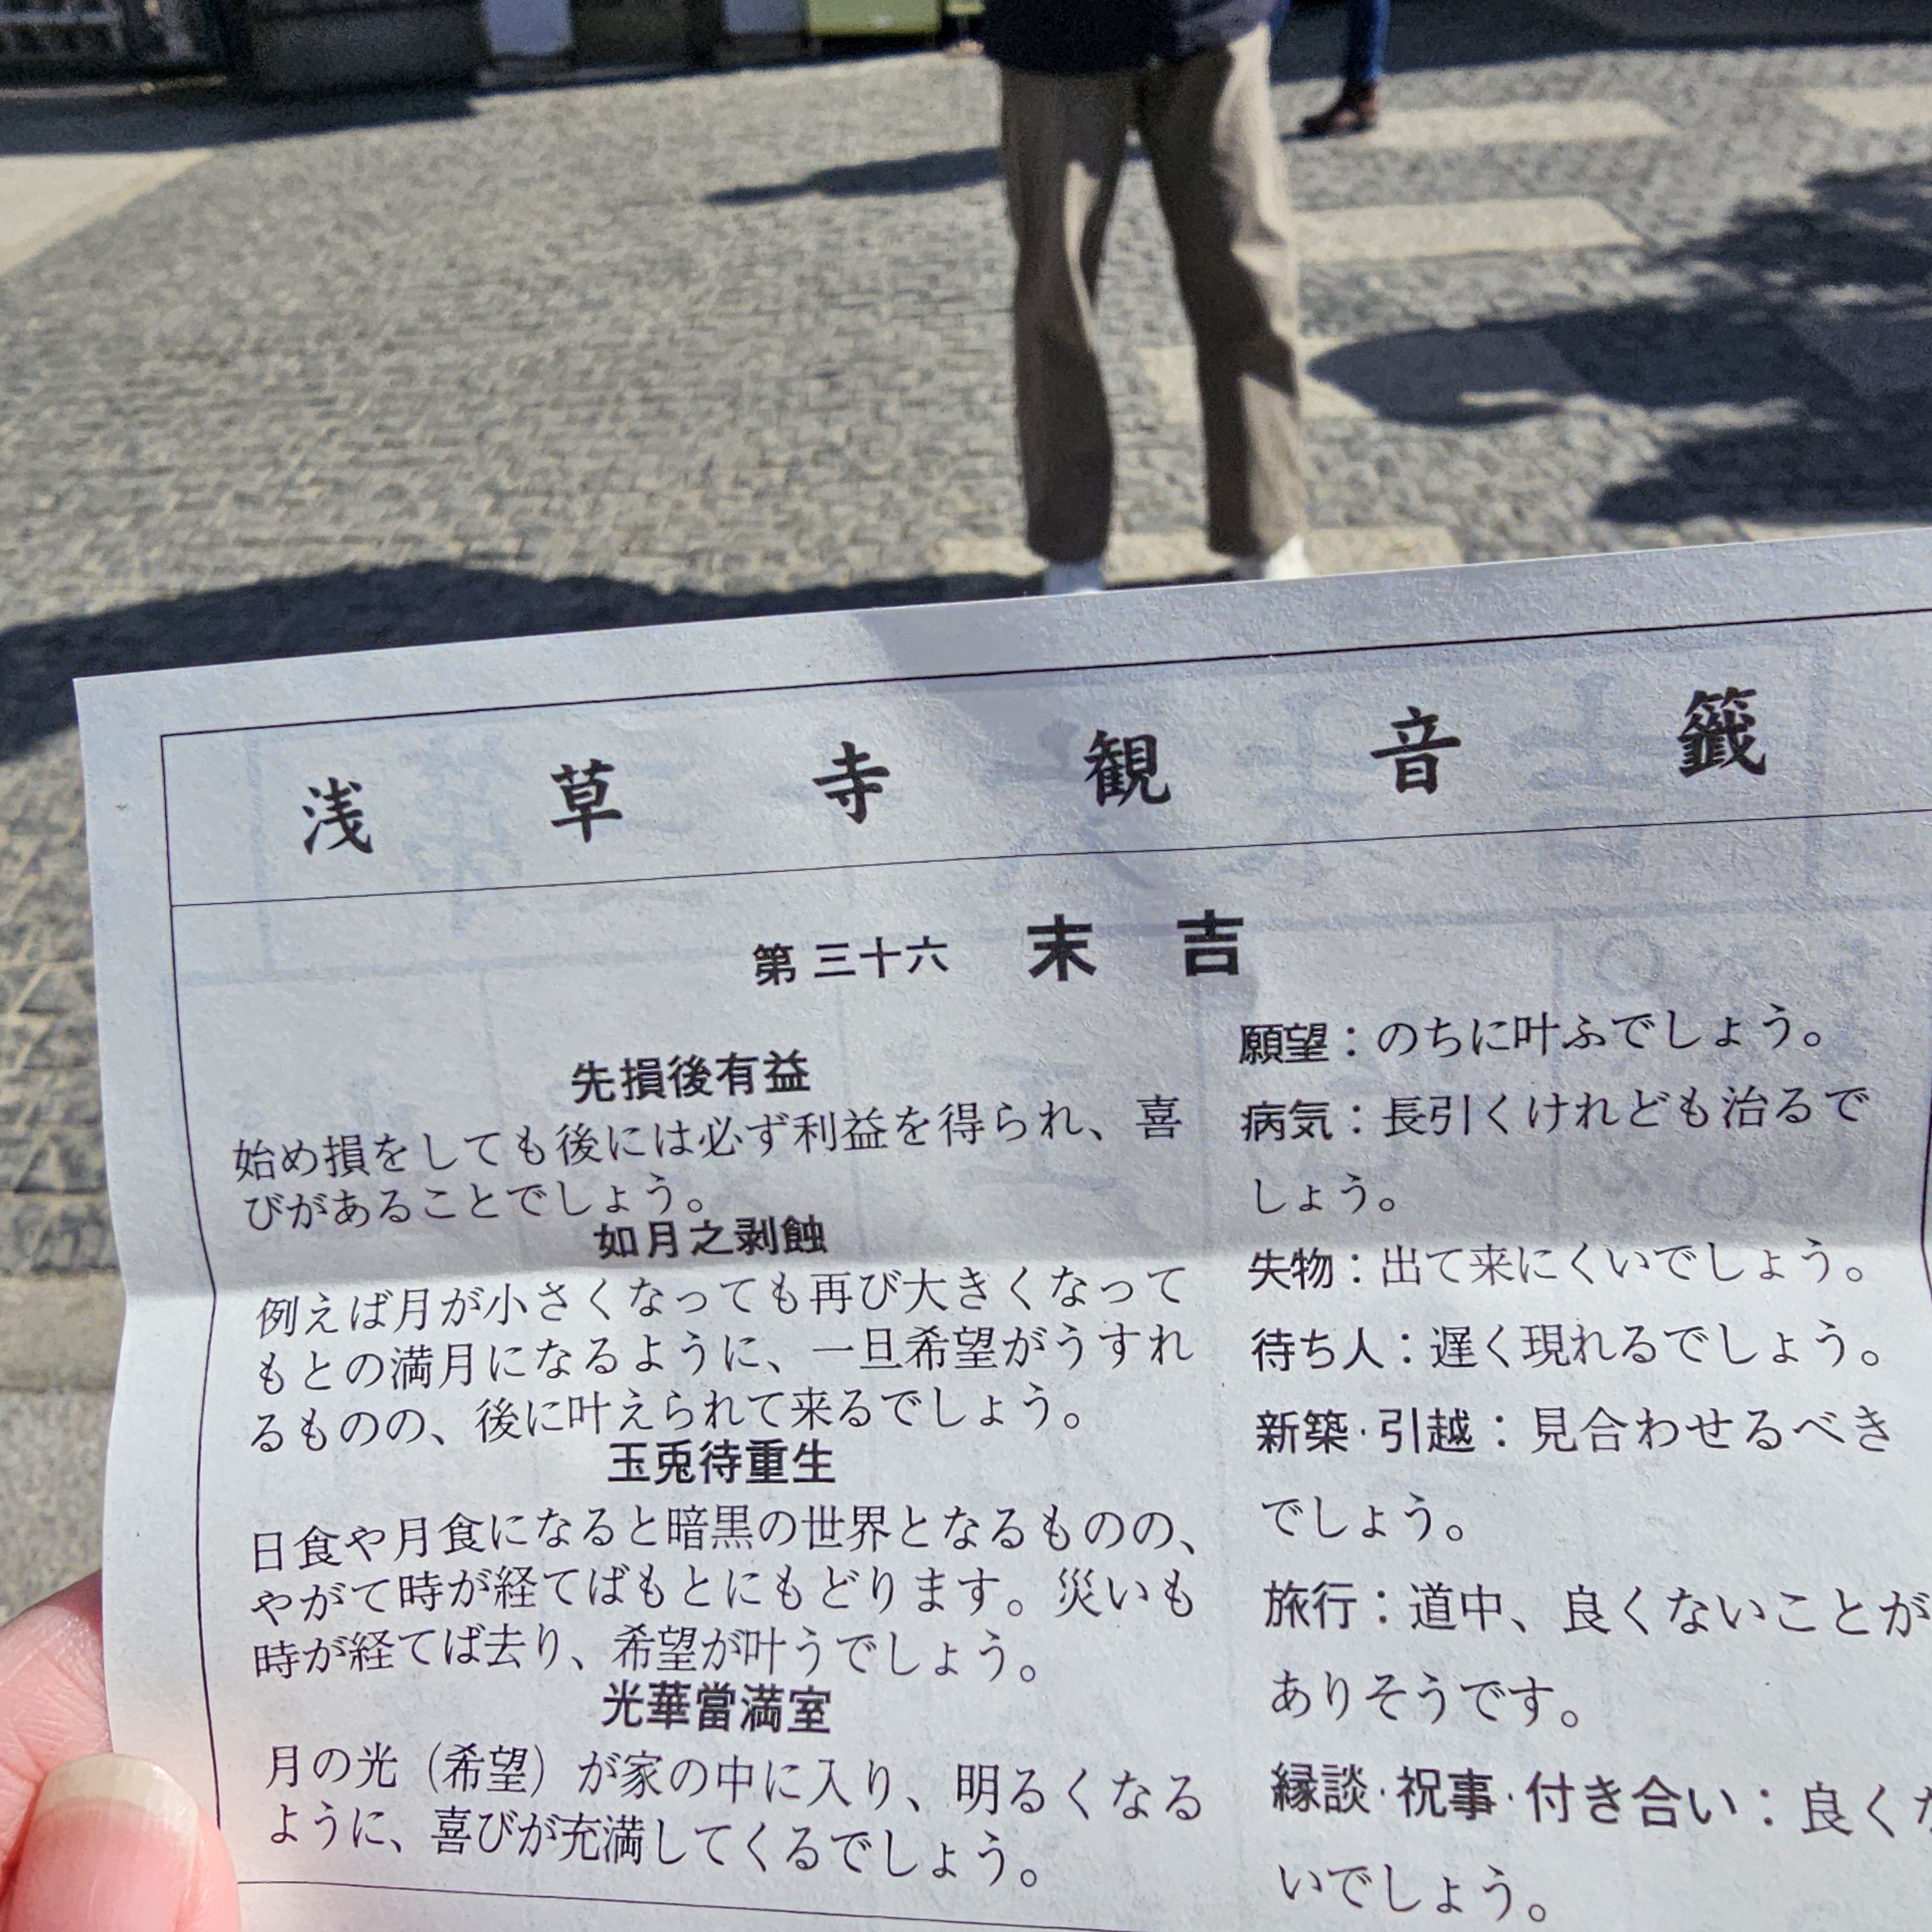 浅草寺観音籤
第三十六 末吉
先損後有益
始め損をしても後には必ず利益を得られ、喜
びがあることでしょう。
如月之剥蝕
例えば月が小さくなっても再び大きくなって
もとの満月になるように、一旦希望がうすれ
るものの、後に叶えられて来るでしょう。
玉兎待重生
日食や月食になると暗黒の世界となるものの、
やがて時が経てばもとにもどります。災いも
時が経てば去り、希望が叶うでしょう。
光華當満室
月の光（希望）が家の中に入り、明るくなる
ように、喜びが充満してくるでしょう。
願望：のちに叶ふでしょう。
病気：長引くけれども治るで
しょう。
失物：出て来にくいでしょう。
待ち人：遅く現れるでしょう。
新築·引越：見合わせるべき
でしょう。
旅行：道中、良くないことが
ありそうです。
縁談·祝事·付き合い：良くな
いでしょう。